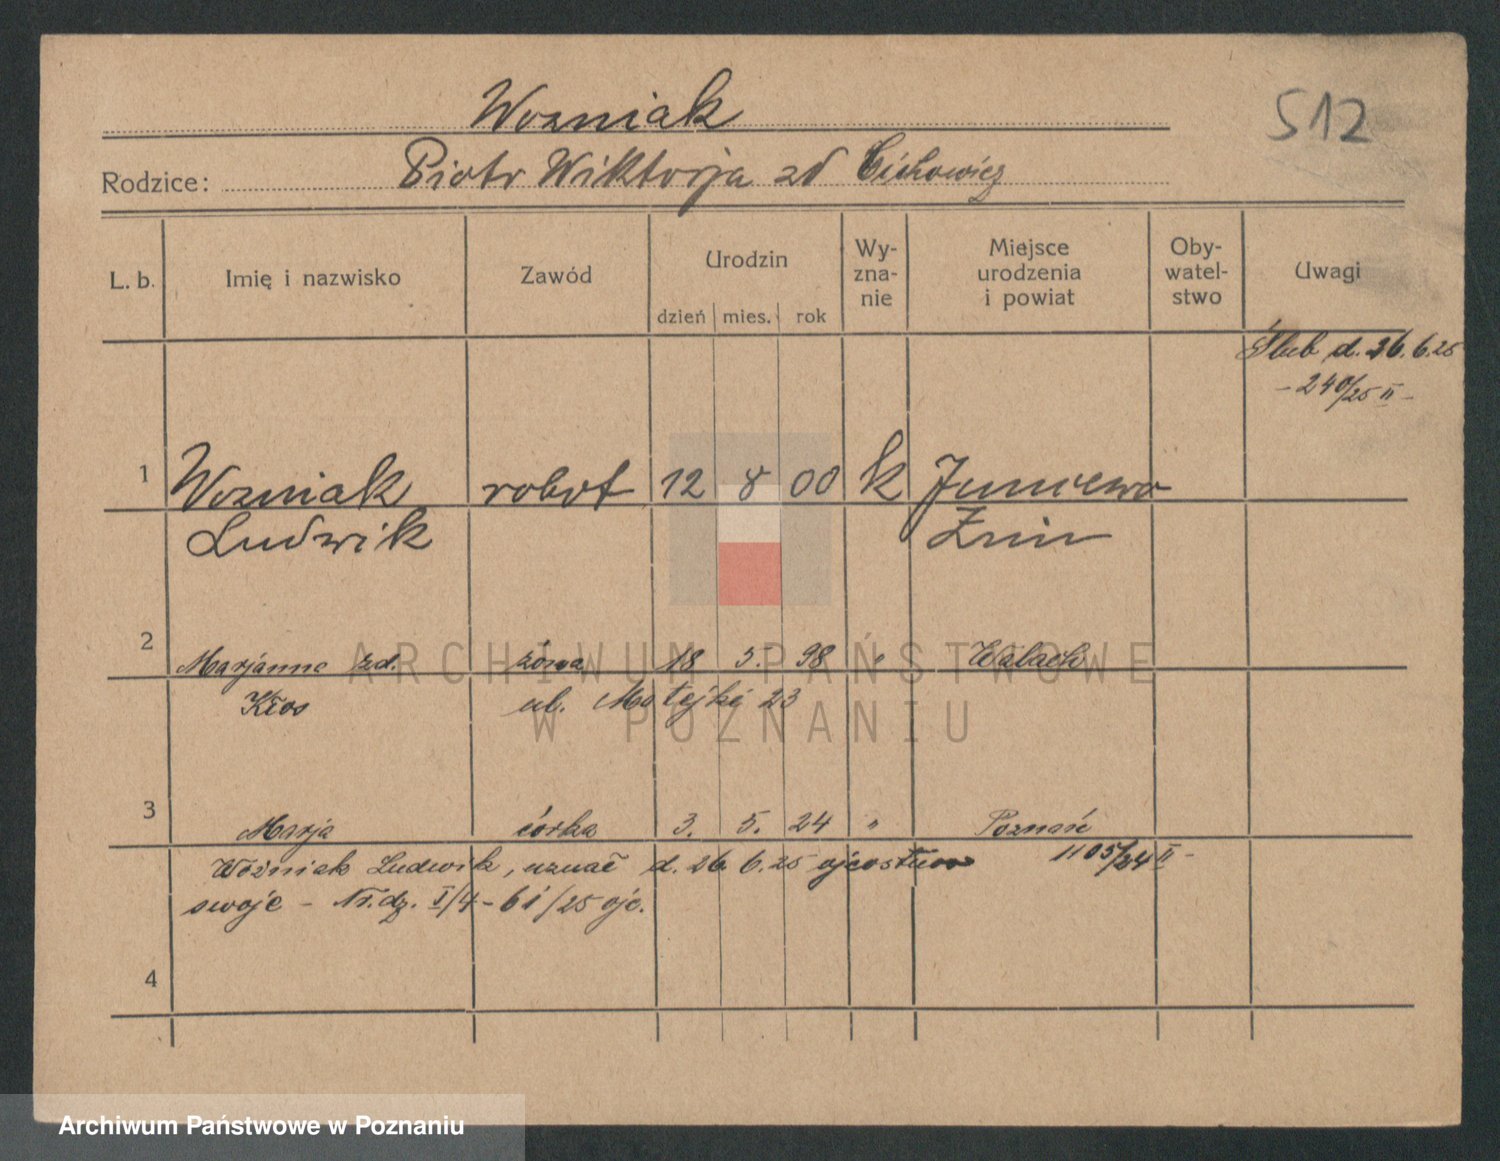 Wozniak
512
Rodzice: Piotr Wiktorja zd Cichowicz
L. b. Imię i nazwisko Zawód Urodzin dzień mies. rok Wy-zna-nie Miejsce urodzenia i powiat Oby-watel-stwo Uwagi
Ślub d. 26.6.25
- 240/25 II -
1 Wozniak robot 12 8 00 k Juncewo
Ludwik Żnin
2 Marjanne zd. żona 18 5. 98 " Walach
Kłos ul. Matejki 23
3 Marja córka 3. 5. 24 " Poznań
1105/24 II -
Woźniak Ludwik, uznał d. 26. 6. 25 ojcostwo
swoje - Nr. dz. I/4 - 61/25 ojc.
4
ARCHIWUM PAŃSTWOWE
W POZNANIU
Archiwum Państwowe w Poznaniu